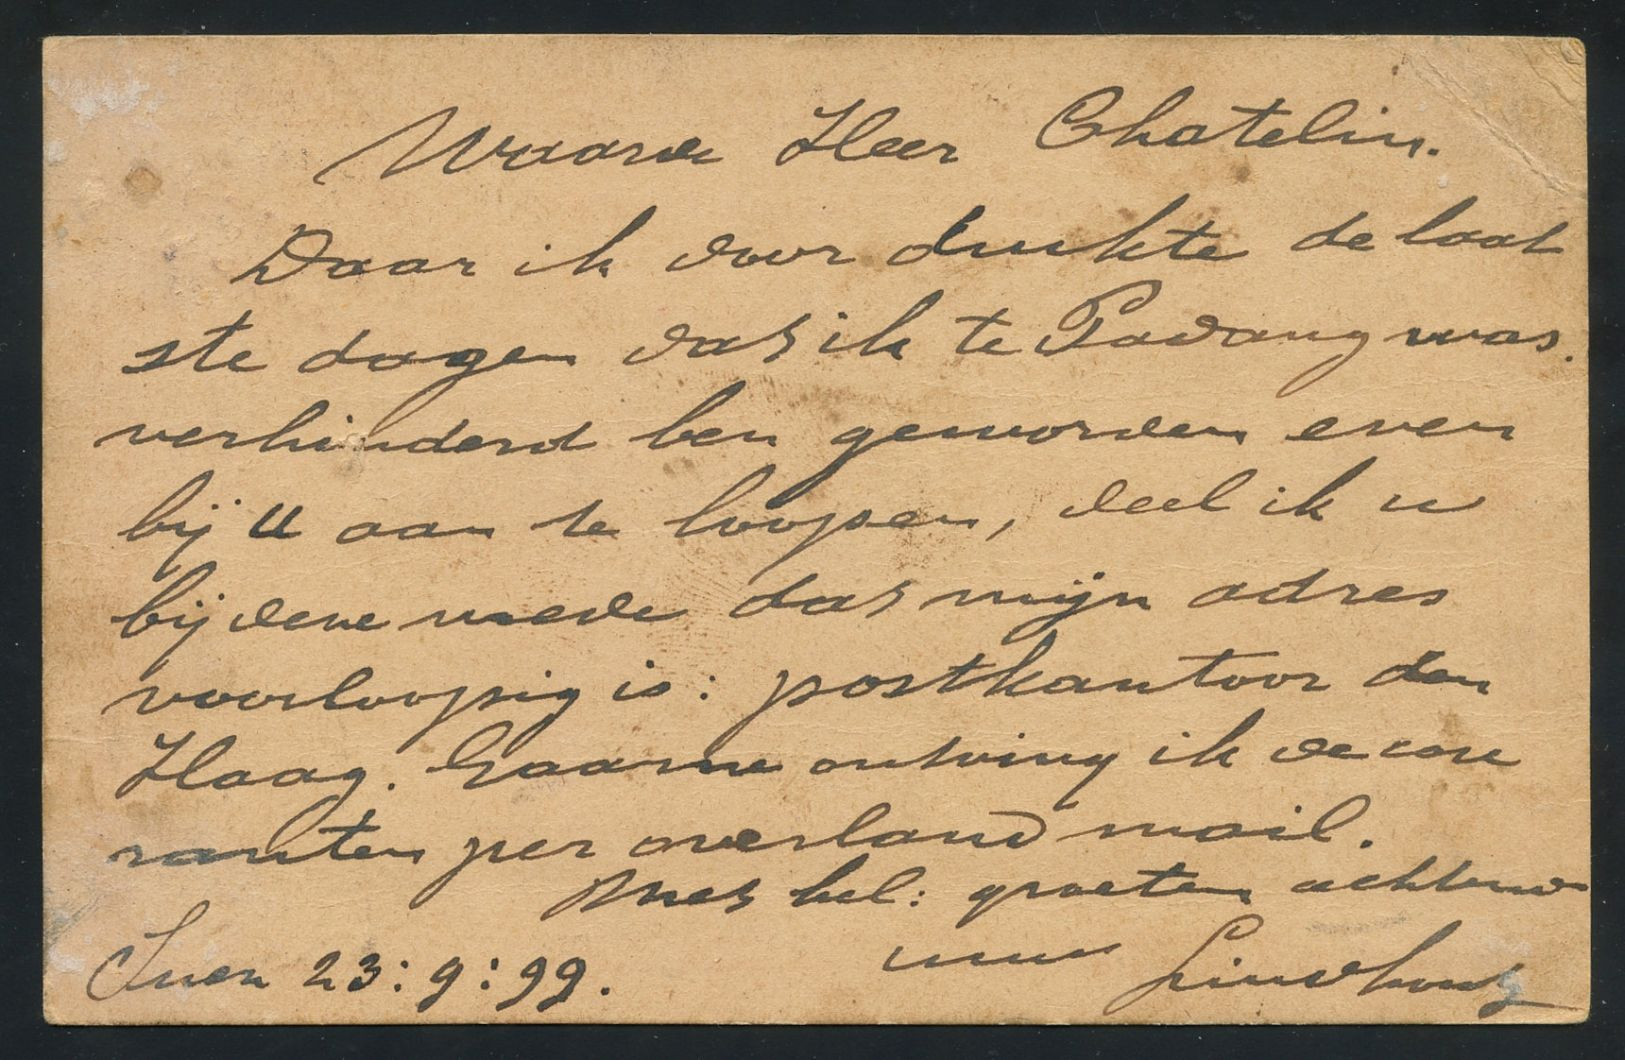 Waarde Heer Chatelin.
Daar ik door drukte de laat
ste dagen dat ik te Padang was.
verhinderd ben geworden even
bij U aan te loopen, deel ik u
bij deze mede dat mijn adres
voorloopig is: postkantoor den
Haag. Gaarne ontving ik de cou
ranten per overland mail.
Met bel: groeten achtend
Suez 23:9:99.